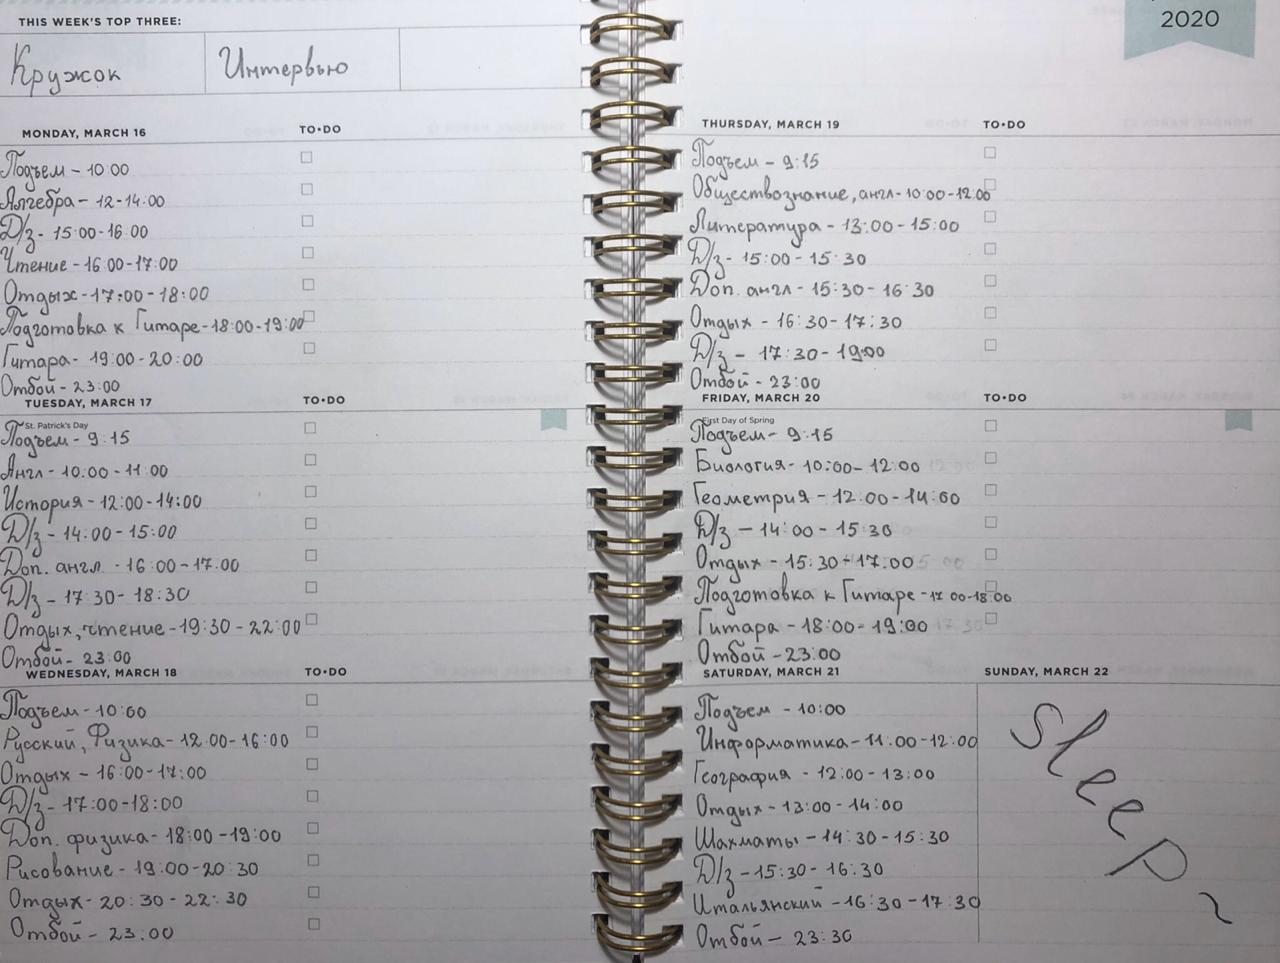 THIS WEEK'S TOP THREE:
Кружок
Интервью
2020
MONDAY, MARCH 16 TO•DO
Подъем - 10:00
Алгебра - 12-14:00
Д/з - 15:00-16:00
Чтение - 16:00-17:00
Отдых - 17:00-18:00
Подготовка к Гитаре - 18:00-19:00
Гитара - 19:00-20:00
Отбой - 23:00
TUESDAY, MARCH 17 TO•DO
St. Patrick's Day
Подъем - 9:15
Англ - 10:00-11:00
История - 12:00-14:00
Д/з - 14:00-15:00
Доп. англ. - 16:00-17:00
Д/з - 17:30-18:30
Отдых, чтение - 19:30-22:00
Отбой - 23:00
WEDNESDAY, MARCH 18 TO•DO
Подъем - 10:00
Русский, Физика - 12:00-16:00
Отдых - 16:00-17:00
Д/з - 17:00-18:00
Доп. физика - 18:00-19:00
Рисование - 19:00-20:30
Отдых - 20:30-22:30
Отбой - 23:00
THURSDAY, MARCH 19 TO•DO
Подъем - 9:15
Обществознание, англ - 10:00-12:00
Литература - 13:00-15:00
Д/з - 15:00-15:30
Доп. англ - 15:30-16:30
Отдых - 16:30-17:30
Д/з - 17:30-19:00
Отбой - 23:00
FRIDAY, MARCH 20 TO•DO
First Day of Spring
Подъем - 9:15
Биология - 10:00-12:00
Геометрия - 12:00-14:00
Д/з - 14:00-15:30
Отдых - 15:30-17:00
Подготовка к Гитаре - 17:00-18:00
Гитара - 18:00-19:00
Отбой - 23:00
SATURDAY, MARCH 21
Подъем - 10:00
Информатика - 11:00-12:00
География - 12:00-13:00
Отдых - 13:00-14:00
Шахматы - 14:30-15:30
Д/з - 15:30-16:30
Итальянский - 16:30-17:30
Отбой - 23:30
SUNDAY, MARCH 22
Sleep